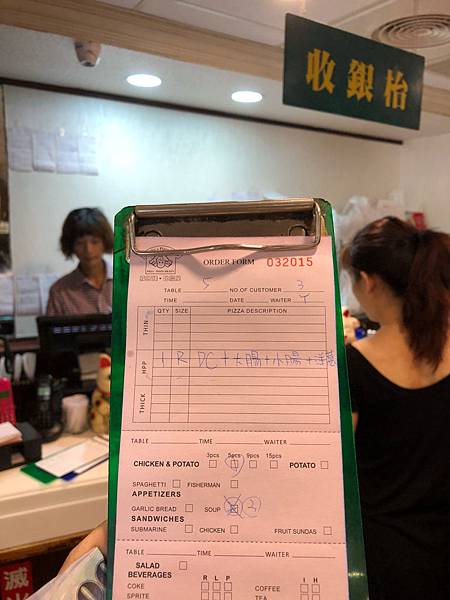 收銀枱
ORDER FORM 032015
TABLE 5 NO OF CUSTOMER 3
TIME DATE WAITER Y
QTY SIZE PIZZA DESCRIPTION
THIN
HPP 1 R PC + 大腸 + 小腸 + 洋蔥
THICK
TABLE TIME WAITER
3pcs 5pcs 9pcs 15pcs
CHICKEN & POTATO POTATO
SPAGHETTI FISHERMAN
APPETIZERS
GARLIC BREAD SOUP 3
SANDWICHES
SUBMARINE CHICKEN FRUIT SUNDAS
TABLE TIME WAITER
SALAD
BEVERAGES
R L P I H
COKE COFFEE
SPRITE TEA
滅火